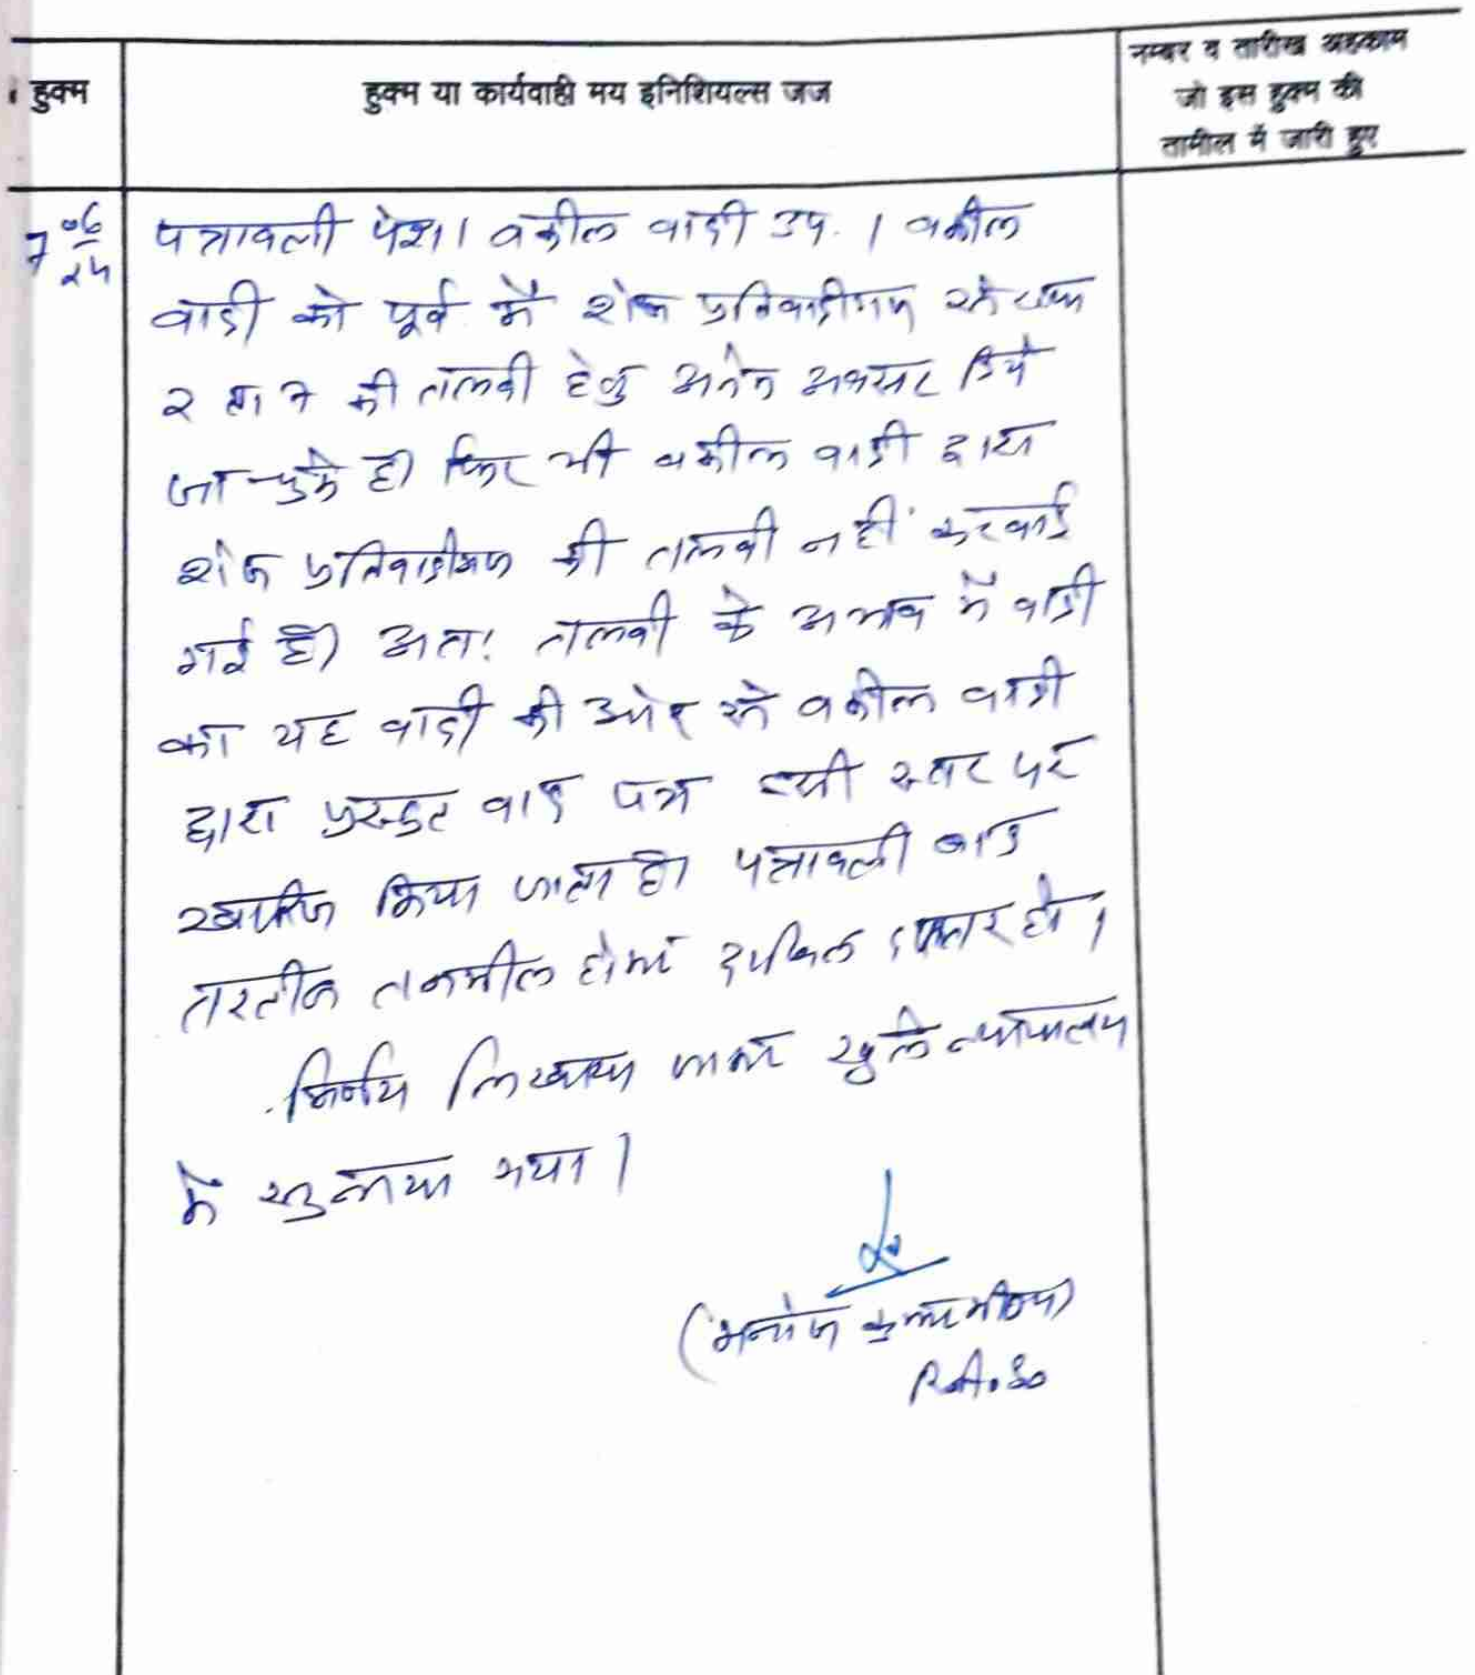 हुक्म
हुक्म या कार्यवाही मय इनिशियल्स जज
नम्बर व तारीख अहकाम
जो इस हुक्म की
तामील में जारी हुए
7
06
24
पत्रावली पेश। वकील वादी उप.। वकील
वादी को पूर्व में शेष प्रतिवादीगण
2 ता 7 की तलबी हेतु अनेक अवसर दिये
जा चुके है। फिर भी वकील वादी द्वारा
शेष प्रतिवादीगण की तलबी नहीं करवाई
गई है। अतः तलबी के अभाव में वादी
का यह वादी की ओर से वकील वादी
द्वारा प्रस्तुत वाद पत्र इसी स्तर पर
खारिज किया जाता है। पत्रावली बाद
तरतीब तकमील होकर दाखिल दफ्तर हो।
निर्णय लिखाया जाकर खुले न्यायालय
में सुनाया गया।
(मनोज कुमार मीणा)
R.A.S.